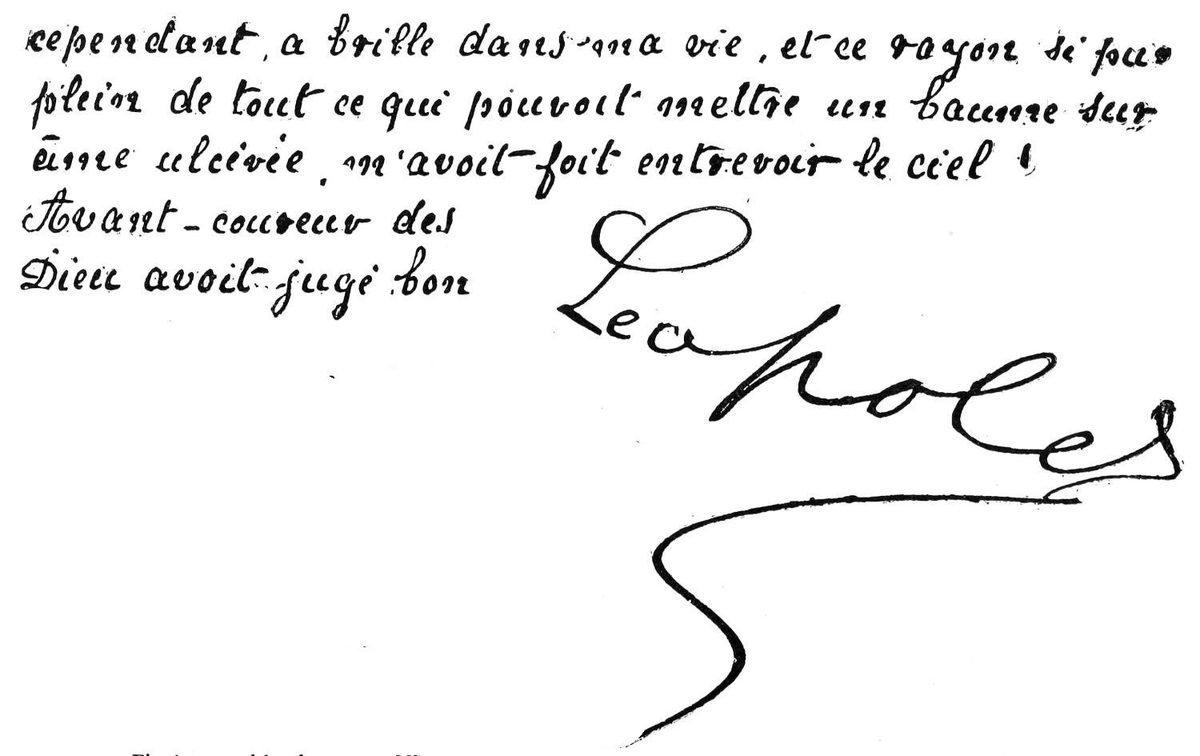 cependant, a brille dans ma vie, et ce rayon si pur
plein de tout ce qui pouvoit mettre un baume sur
âme ulcérée, m'avoit foit entrevoir le ciel !
Avant-coureur des
Dieu avoit jugé bon
Leopold